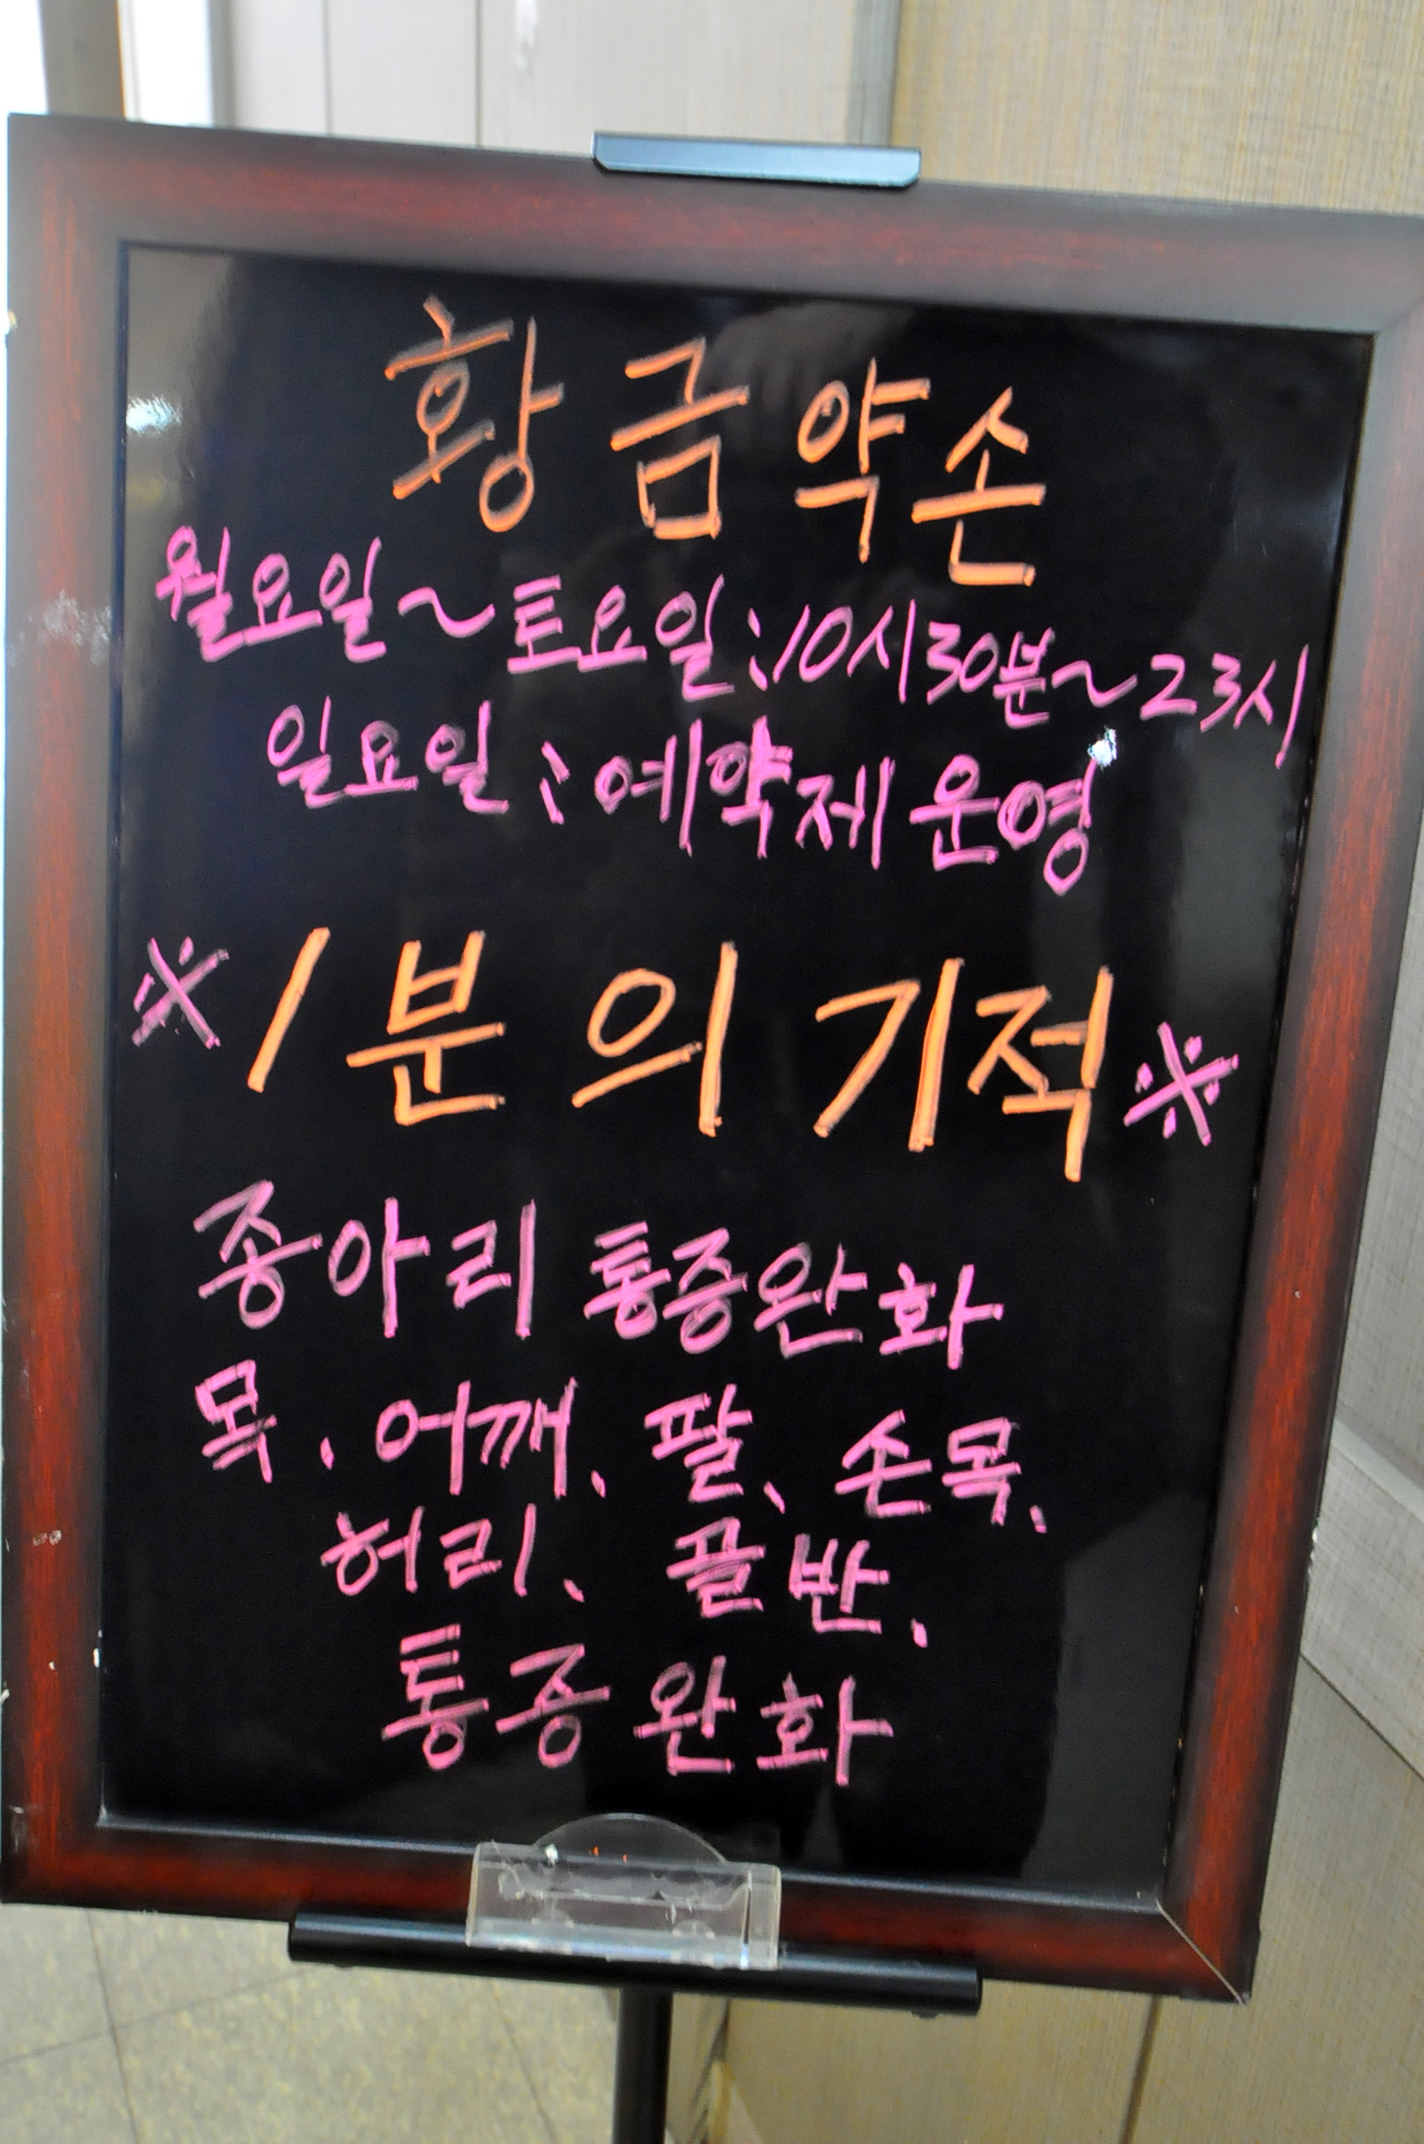 황금약손
월요일~토요일:10시30분~23시
일요일:예약제 운영
※1분의 기적※
종아리 통증완화
목, 어깨, 팔, 손목,
허리, 골반,
통증완화